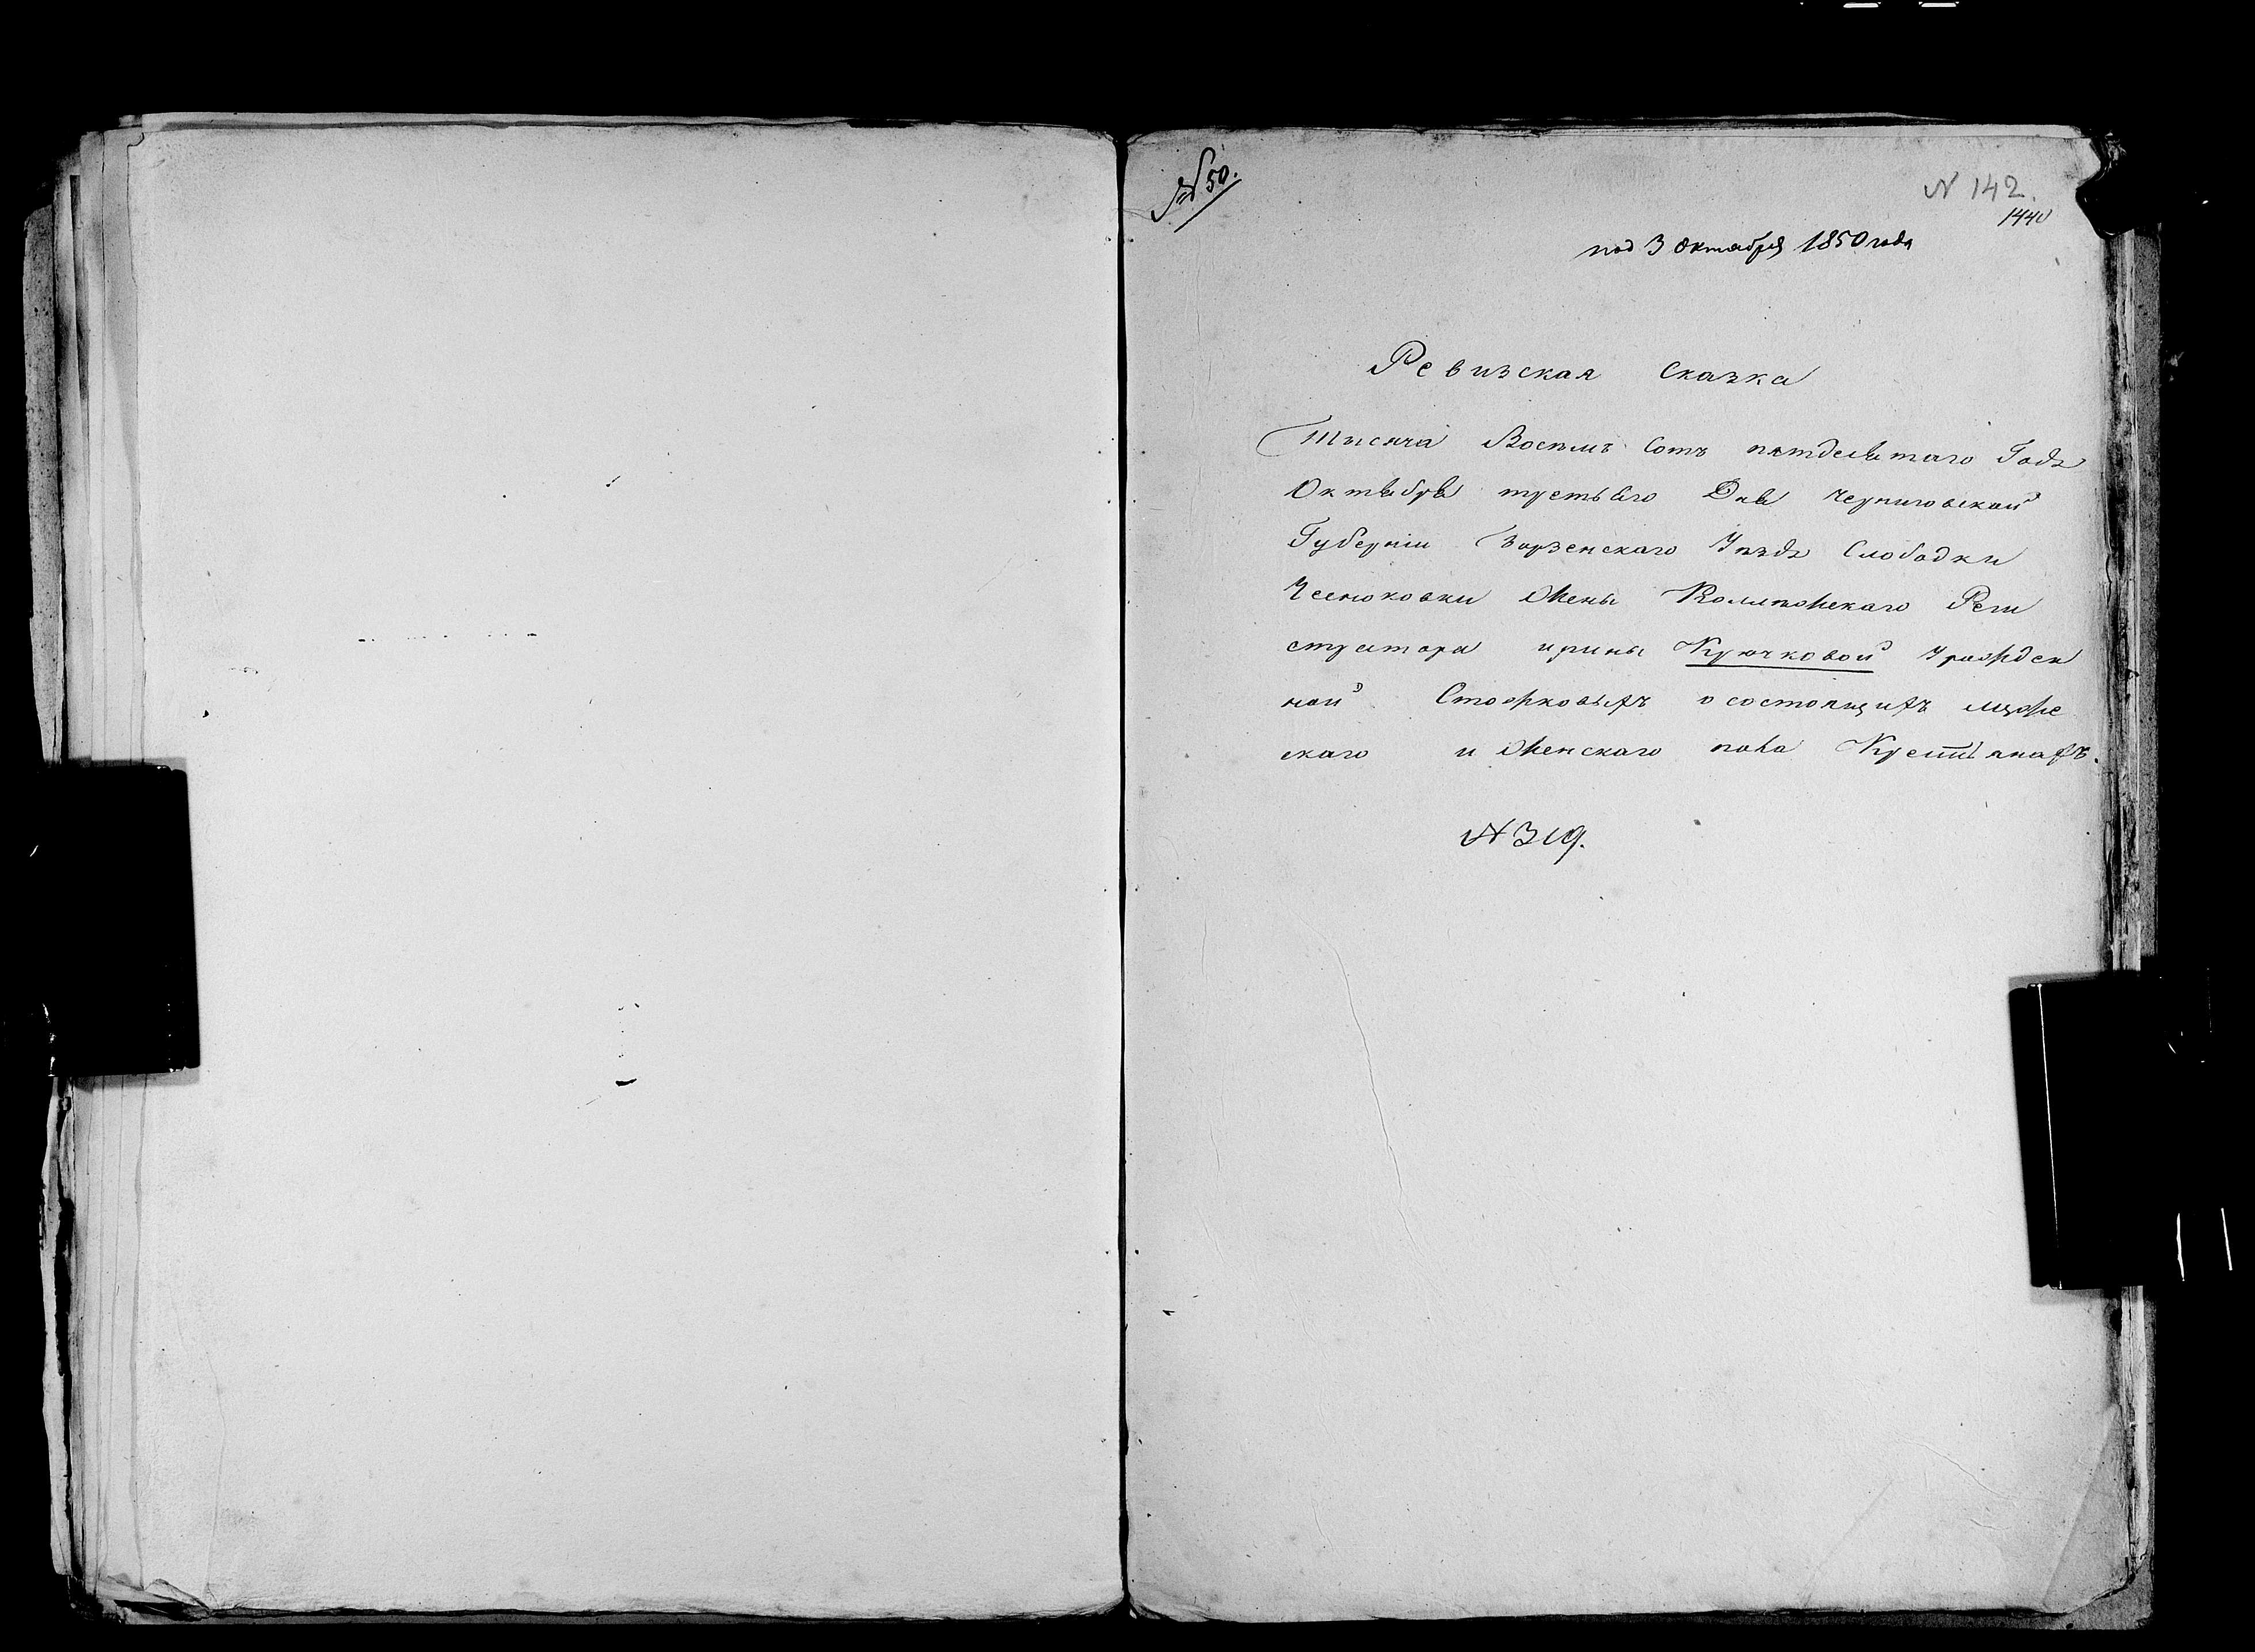 № 50.
N 142.
1440
под 3 октября 1850 года
Ревизская Сказка
Тысяча Восемь Сотъ пятдесятаго Года
Октября третьяго Дня Черниговской
Губерніи Борзенскаго Уезда Слободки
Чесноковки Жены Колежскаго Реги
стратора ирины Крючковой Урожден
ной о состоящихъ мужe
скаго и Женскаго пола Крестьянахъ.
№ 319.